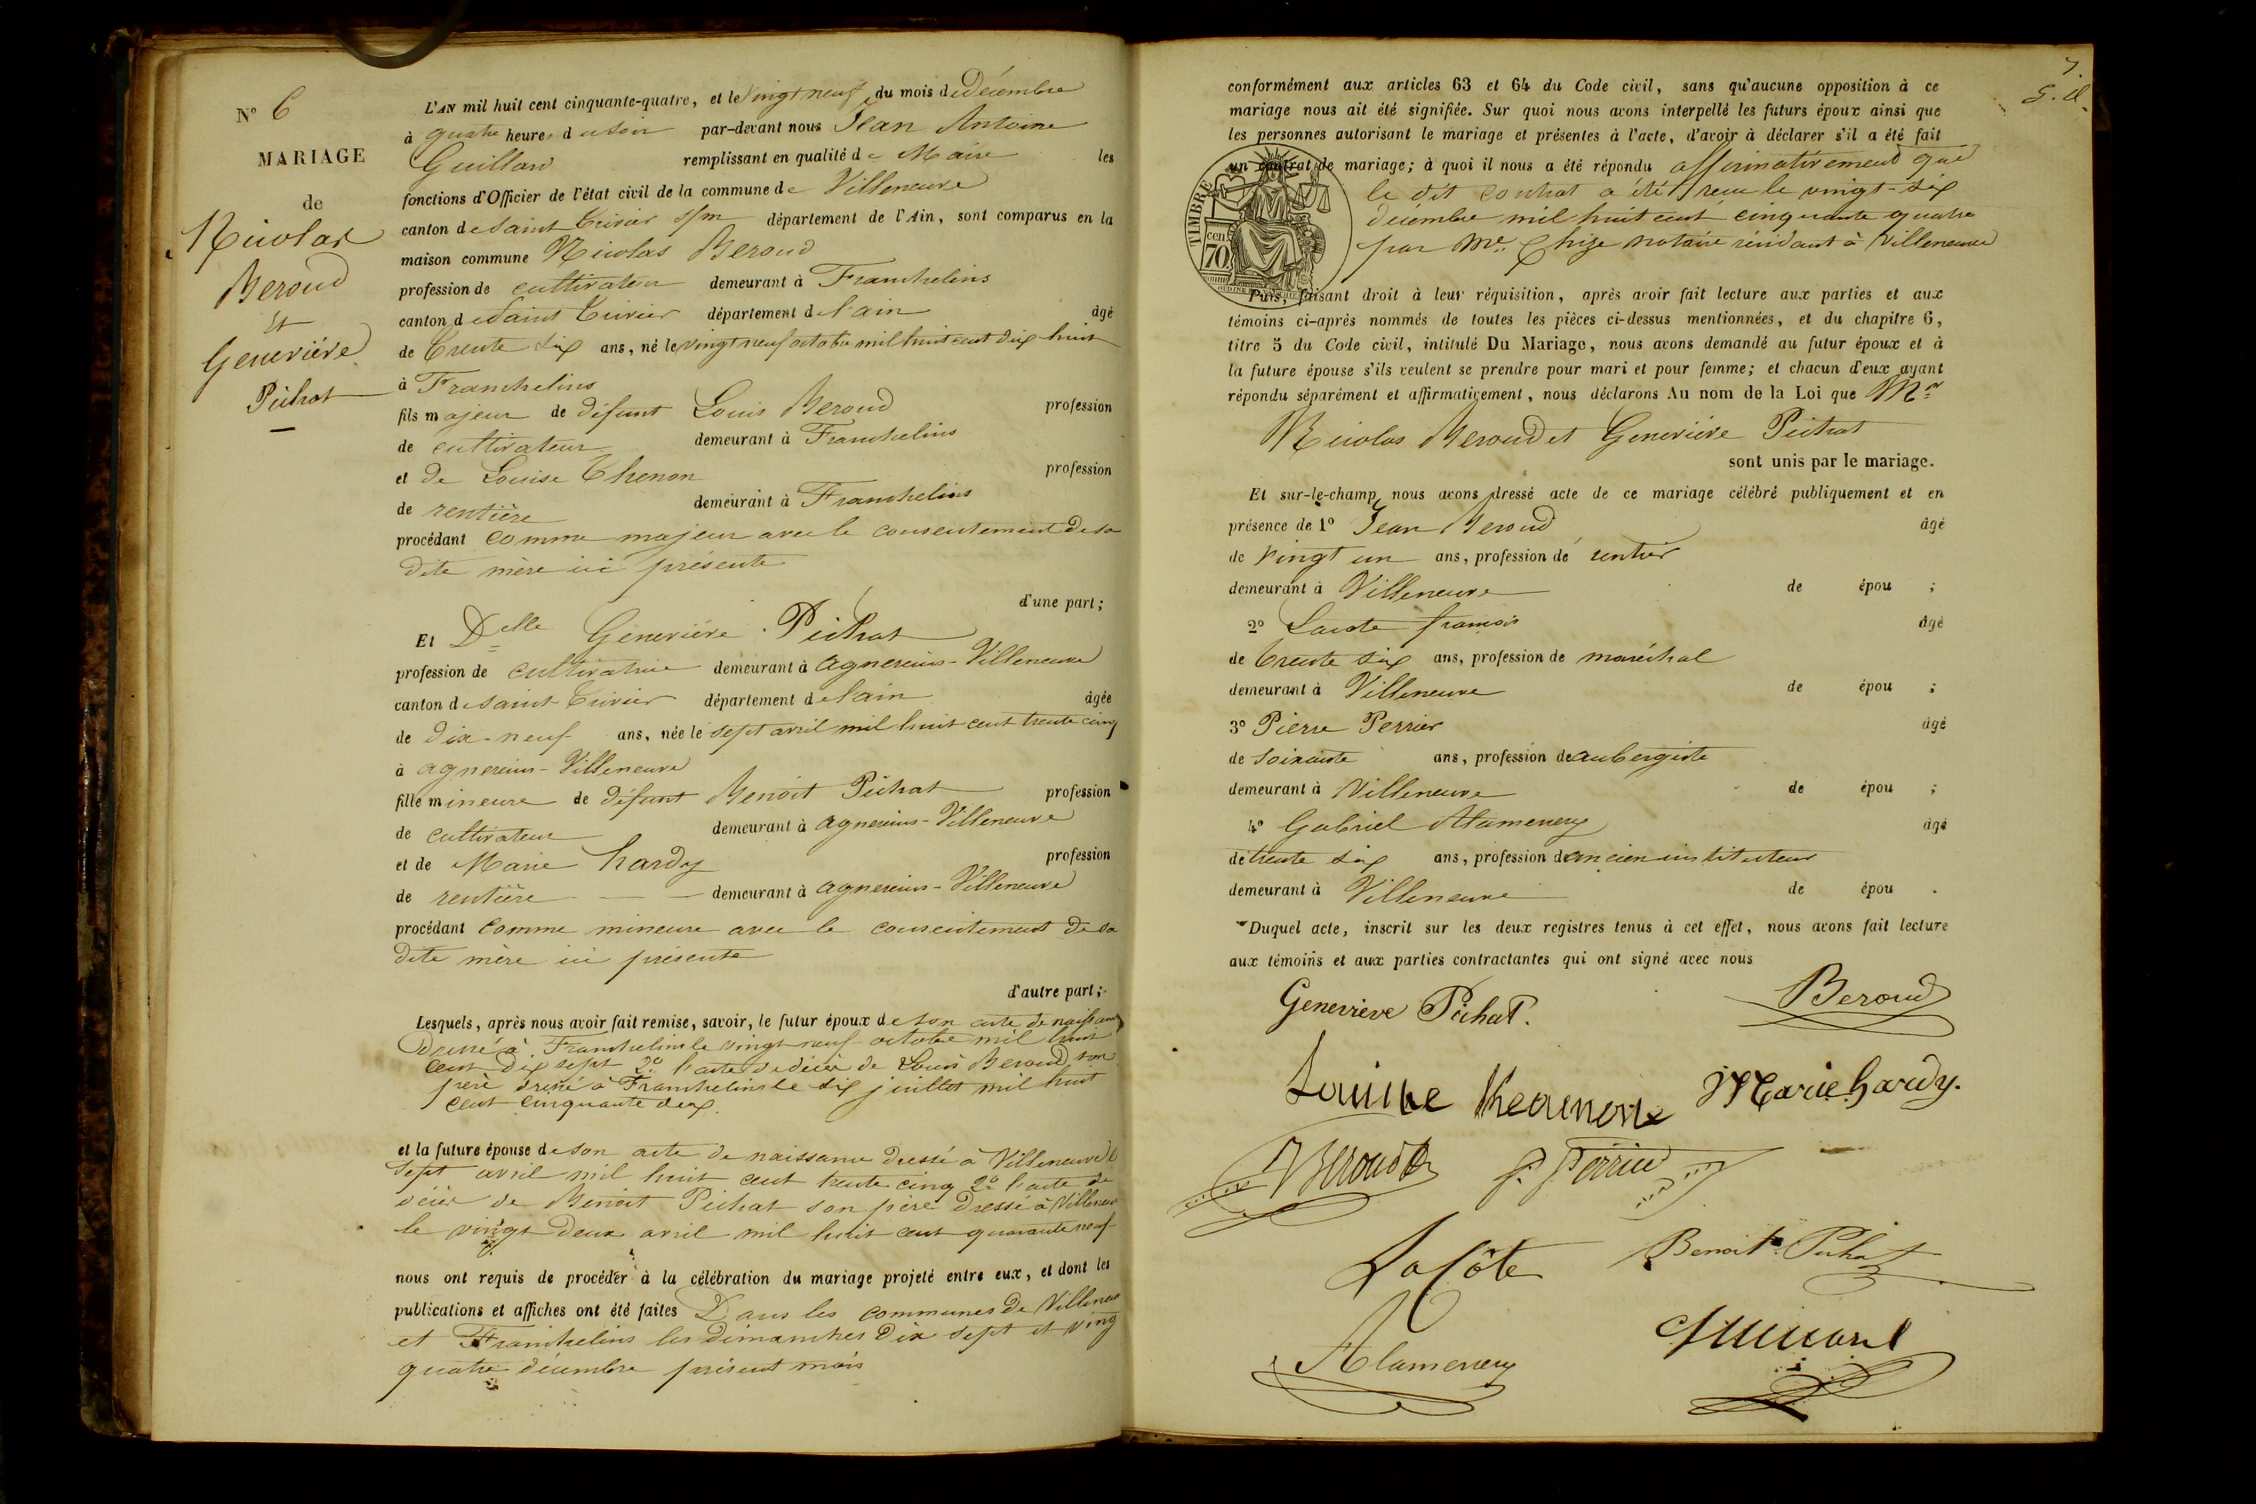 N° 6
MARIAGE
de
Nicolas
Beroud
Et
Geneviève
Pichat
L'AN mil huit cent cinquante-quatre, et le vingt neuf du mois de Décembre
à quatre heures du soir par-devant nous Jean Antoine
Guillard remplissant en qualité de Maire les
fonctions d'Officier de l'état civil de la commune de Villeneuve
canton de saint Trivier s/m département de l'Ain, sont comparus en la
maison commune Nicolas Beroud
profession de cultivateur demeurant à Franchelins
canton de Saint Trivier département de l'ain âgé
de trente six ans, né le vingt neuf octobre mil huit cent dix huit
à Franchelins
fils majeur de défunt Louis Beroud profession
de cultivateur demeurant à Franchelins
et de Louise Thenon profession
de rentière demeurant à Franchelins
procédant comme majeur avec le consentement de sa
dite mère ici présente
d'une part;
Et Delle Geneviève Pichat
profession de cultivatrice demeurant à agnereins-Villeneuve
canton de saint Trivier département de l'ain âgée
de dix-neuf ans, née le sept avril mil huit cent trente cinq
à agnereins-Villeneuve
fille mineure de défunt Benoit Pichat profession
de cultivateur demeurant à agnereins-Villeneuve
et de Marie hardy profession
de rentière demeurant à agnereins-Villeneuve
procédant comme mineure avec le consentement de sa
dite mère ici présente
d'autre part;
Lesquels, après nous avoir fait remise, savoir, le futur époux de son acte de naissance
dressé à Franchelins le vingt neuf octobre mil huit
cent dix sept 2° l'acte de décès de Louis Beroud son
père dressé à Franchelins le six juillet mil huit
cent cinquante deux.
et la future épouse de son acte de naissance dressé à Villeneuve le
sept avril mil huit cent trente cinq 2° l'acte de
décès de Benoit Pichat son père dressé à Villeneuve
le vingt deux avril mil huit cent quarante neuf
nous ont requis de procéder à la célébration du mariage projeté entre eux, et dont les
publications et affiches ont été faites Dans les communes de Villeneuve
et Franchelins les dimanches dix sept et vingt
quatre décembre présent mois
7.
conformément aux articles 63 et 64 du Code civil, sans qu'aucune opposition à ce
mariage nous ait été signifiée. Sur quoi nous avons interpellé les futurs époux ainsi que
les personnes autorisant le mariage et présentes à l'acte, d'avoir à déclarer s'il a été fait
un contrat de mariage; à quoi il nous a été répondu affirmativement que
le dit contrat a été reçu le vingt-six
décembre mil huit cent cinquante quatre
par Me notaire résidant à Villeneuve
TIMBRE
cen. 70
Puis, faisant droit à leur réquisition, après avoir fait lecture aux parties et aux
témoins ci-après nommés de toutes les pièces ci-dessus mentionnées, et du chapitre 6,
titre 5 du Code civil, intitulé Du Mariage, nous avons demandé au futur époux et à
la future épouse s'ils veulent se prendre pour mari et pour femme; et chacun d'eux ayant
répondu séparément et affirmativement, nous déclarons Au nom de la Loi que Mr
Nicolas Beroud et Geneviève Pichat
sont unis par le mariage.
Et sur-le-champ nous avons dressé acte de ce mariage célébré publiquement et en
présence de 1° Jean Beroud âgé
de vingt un ans, profession de rentier
demeurant à Villeneuve de épou ;
2° Lacote françois âgé
de trente six ans, profession de maréchal
demeurant à Villeneuve de épou ;
3° Pierre Perrier âgé
de soixante ans, profession de aubergiste
demeurant à Villeneuve de épou ;
4° Gabriel Alamercery âgé
de trente six ans, profession de ancien instituteur
demeurant à Villeneuve de épou .
Duquel acte, inscrit sur les deux registres tenus à cet effet, nous avons fait lecture
aux témoins et aux parties contractantes qui ont signé avec nous
Geneviève Pichat. Beroud
Marie hardy.
Beroud P. Perrier
LaCôte Benoit Pichat
Alamercery Guillard